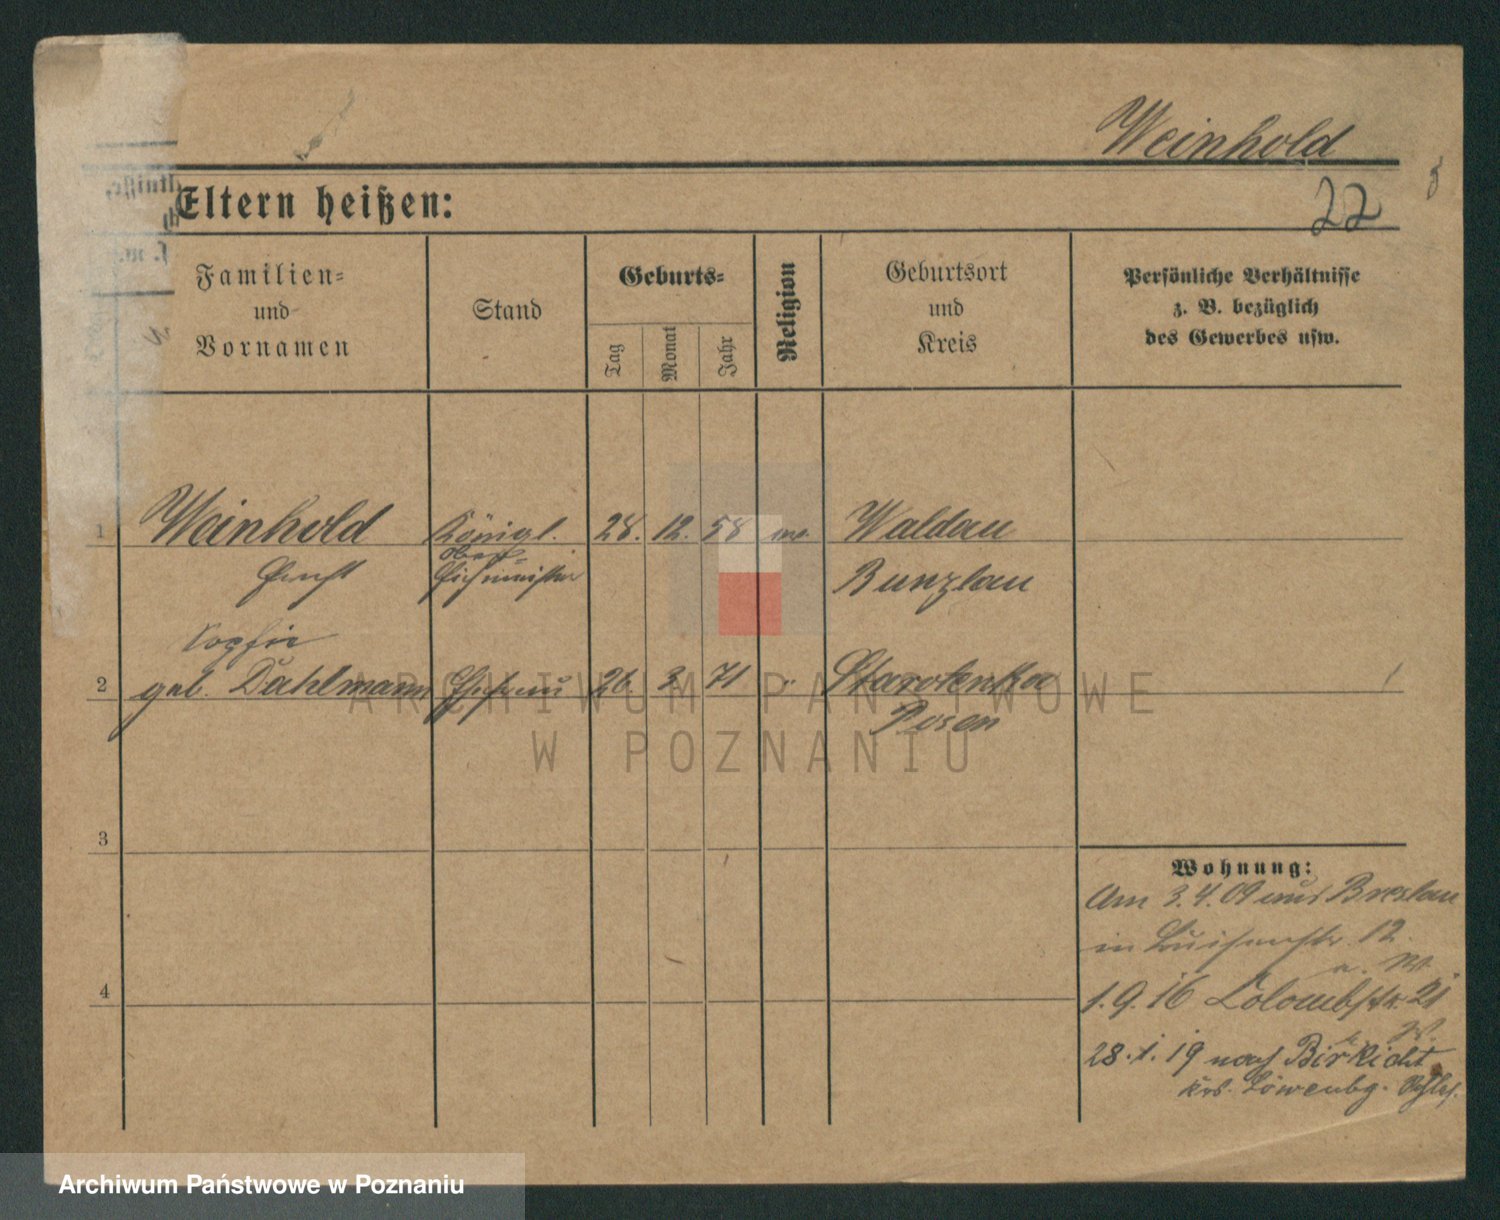 Weinhold
22
Eltern heißen:
Familien-
und
Vornamen
Stand
Geburts-
Tag
Monat
Jahr
Religion
Geburtsort
und
Kreis
Persönliche Verhältnisse
z. B. bezüglich
des Gewerbes usw.
1 Weinhold Königl. 28. 12. 58 Waldau
Ober-
Ernst Eichmeister Bunzlau
Sophie
2 geb. Dahlmann Ehefrau 26. 3. 71 " Starolenka
Posen
3
4
Wohnung:
Am 3.4.09 aus Breslau
in Luisenstr. 12.
1.9.16 Colombstr. 21
28.1.19 nach Birkicht
Krs. Löwenbg. Schles.
ARCHIWUM PAŃSTWOWE
W POZNANIU
Archiwum Państwowe w Poznaniu